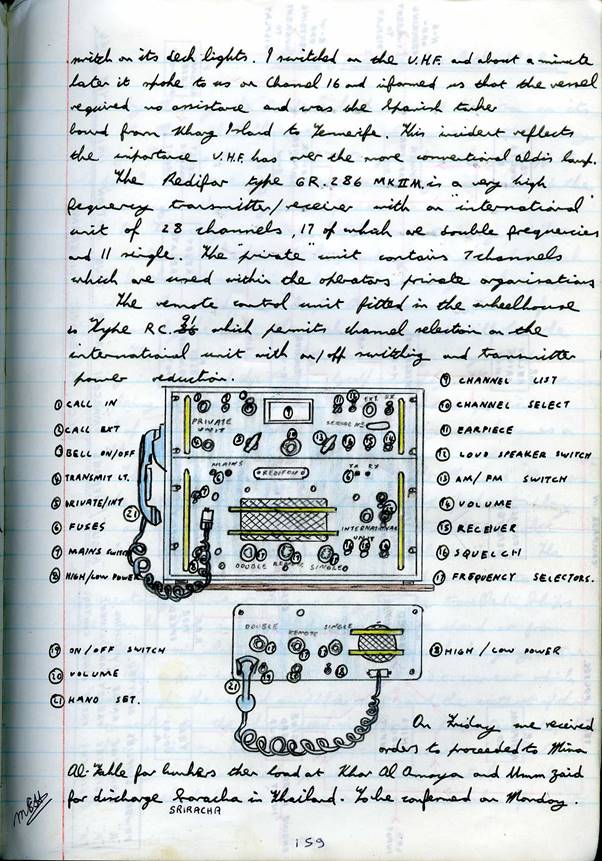 switch on its deck lights. I switched on the V.H.F. and about a minute
later it spoke to us on Channel 16 and informed us that the vessel
required no assistance and was the Spanish tanker
bound from Kharg Island to Tenerife. This incident reflects
the importance V.H.F. has over the more conventional aldis lamp.
The Redifon type GR.286 MKIIM. is a very high
frequency transmitter/receiver with an "international"
unit of 28 channels, 17 of which are double frequencies
and 11 single. The "private" unit contains 7 channels
which are used within the operators private organisations
The remote control unit fitted in the wheelhouse
is type R.C. 91 which permits channel selection on the
international unit with on/off switching and transmitter
power reduction.
① CALL IN
② CALL EXT
③ BELL ON/OFF
④ TRANSMIT LT.
⑤ PRIVATE/INT
⑥ FUSES
⑦ MAINS SWITCH
⑧ HIGH/LOW POWER
PRIVATE
UNIT
EXT
SERIAL No
MAINS
REDIFON
TX
INTERNATIONAL
UNIT
DOUBLE
SINGLE
㉑
⑨ CHANNEL LIST
⑩ CHANNEL SELECT
⑪ EARPIECE
⑫ LOUD SPEAKER SWITCH
⑬ AM/FM SWITCH
⑭ VOLUME
⑮ RECEIVER
⑯ SQUELCH
⑰ FREQUENCY SELECTORS.
DOUBLE
REMOTE
SINGLE
㉑
⑲ ON/OFF SWITCH
⑳ VOLUME
㉑ HAND SET.
⑱ HIGH/LOW POWER
On Friday we received
orders to proceeded to Mina
Al-Fahle for bunkers then load at Khor Al Amaya and Umm Zaid
for discharge Saracha in Thailand. To be confirmed on Monday.
SRIRACHA
159